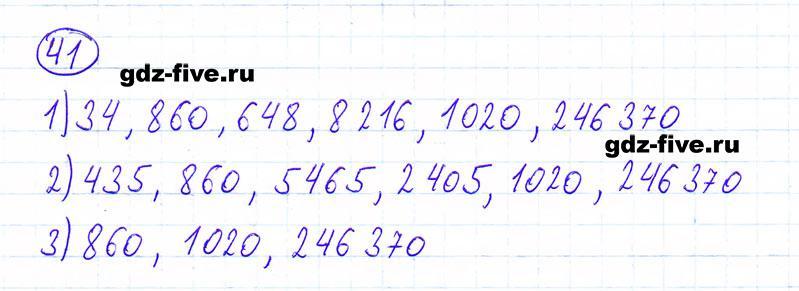 41
gdz-five.ru
1) 34, 860, 648, 8 216, 1020, 246 370
gdz-five.ru
2) 435, 860, 5465, 2 405, 1020, 246 370
3) 860, 1020, 246 370